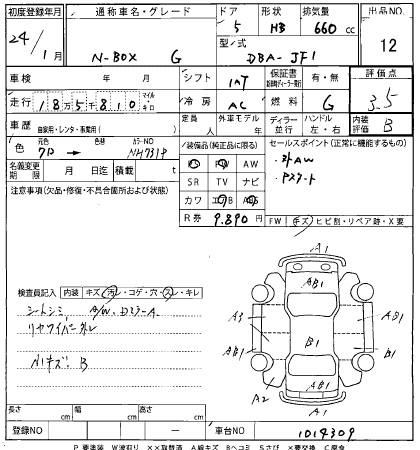 初度登録年月 通称車名・グレード ドア 形状 排気量 出品NO.
24/1月 N-BOX G 5 HB 660 cc 12
型/式 DBA-JF1
車検 年 月 シフト INT 保証書 有・無 評価点
走行 18万5千810 マイル・キロ 冷房 AC 燃料 G 3.5
車歴 自家用・レンタ・事業用( ) 定員 人 外車モデル 年 ディーラー 並行 ハンドル 左・右 内装評価 B
色 元色 → 色替 カラーNO NH731P
装備品(純正品に限る) セールスポイント(正常に機能するもの)
PS PW AW ・外AW
名義変更期限 月 日迄 積載 t SR TV ナビ ・Pスタート
注意事項(欠品・修復・不具合箇所および状態) カワ エアB ABS
R券 9.890円 FW (キズ・ヒビ割・リペア跡・X要
A1
AB1
検査員記入 内装 キズ・汚レ・コゲ・穴・スレ・キレ
シートシミ B/W、Dミラ-A
リヤワイパー外レ
A3 B1
AB1 B1
N1キズ B
A2 AB1
A1
長さ cm 幅 cm 高さ cm
登録NO 車台NO 1014309
P要塗装 W波有り ××取替済 A線キズ Bヘコミ Sさび ×要交換 C腐食